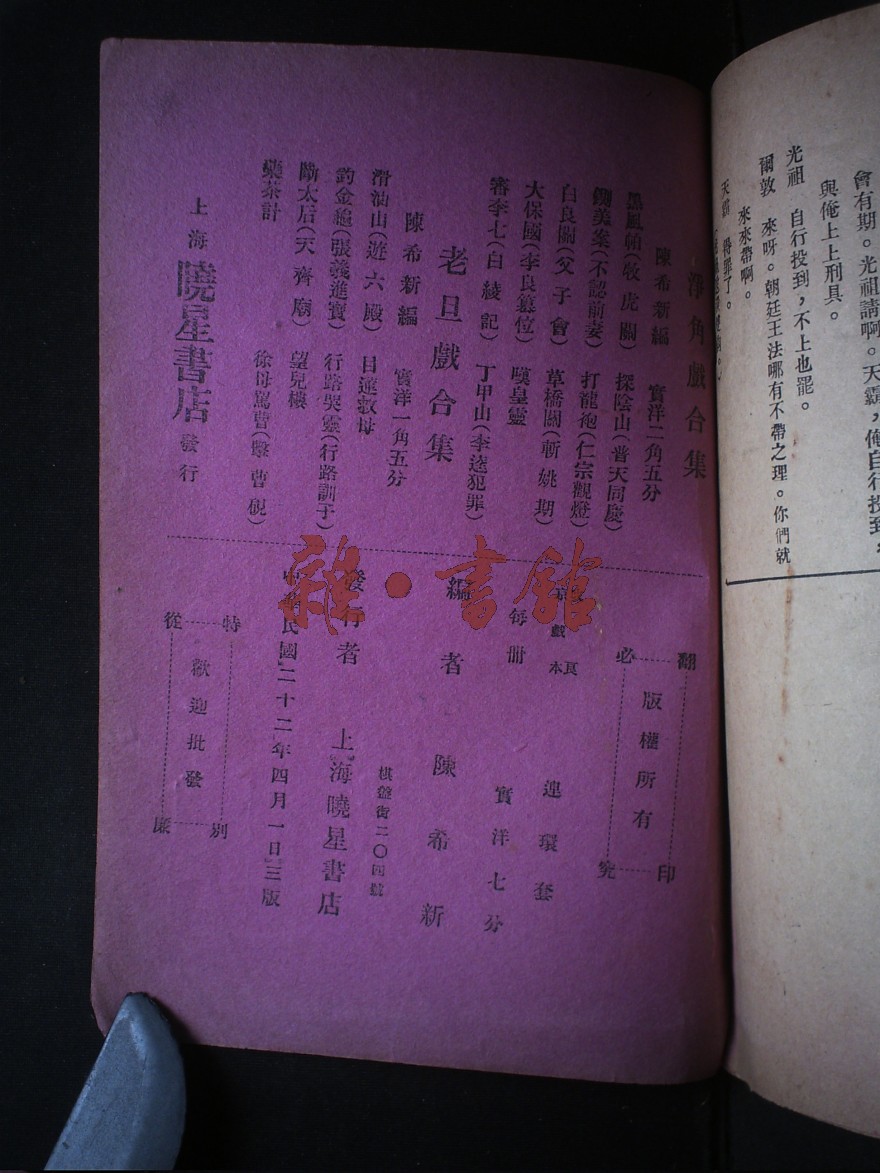 會有期。光祖請啊。天霸,俺自行投到,
與俺上上刑具。
光祖 自行投到,不上也罷。
爾敦 來呀。朝廷王法哪有不帶之理。你們就
來來帶啊。
天霸 得罪了。
淨角戲合集
陳希新編 實洋二角五分
黑風帕(牧虎關) 探陰山(普天同慶)
鍘美案(不認前妻) 打龍袍(仁宗觀燈)
白良關(父子會) 草橋關(斬姚期)
大保國(李良篡位) 嘆皇靈
審李七(白綾記) 丁甲山(李逵犯罪)
老旦戲合集
陳希新編 實洋一角五分
滑油山(遊六殿) 目蓮救母
釣金龜(張義進寶) 行路哭靈(行路訓子)
斷太后(天齊廟) 望兒樓
藥茶計 徐母罵曹(擊曹硯)
上海曉星書店發行
翻印必究
版權所有
戲本 連環套
每冊 實洋七分
編者 陳希新
棋盤街二〇四號
發行者 上海曉星書店
中華民國二十二年四月一日三版
特別從廉
歡迎批發
雜·書館